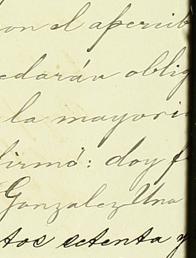 on el apercib
edarán oblig
la mayoria
firmó: doy f
Gonzalez Una
tos setenta y